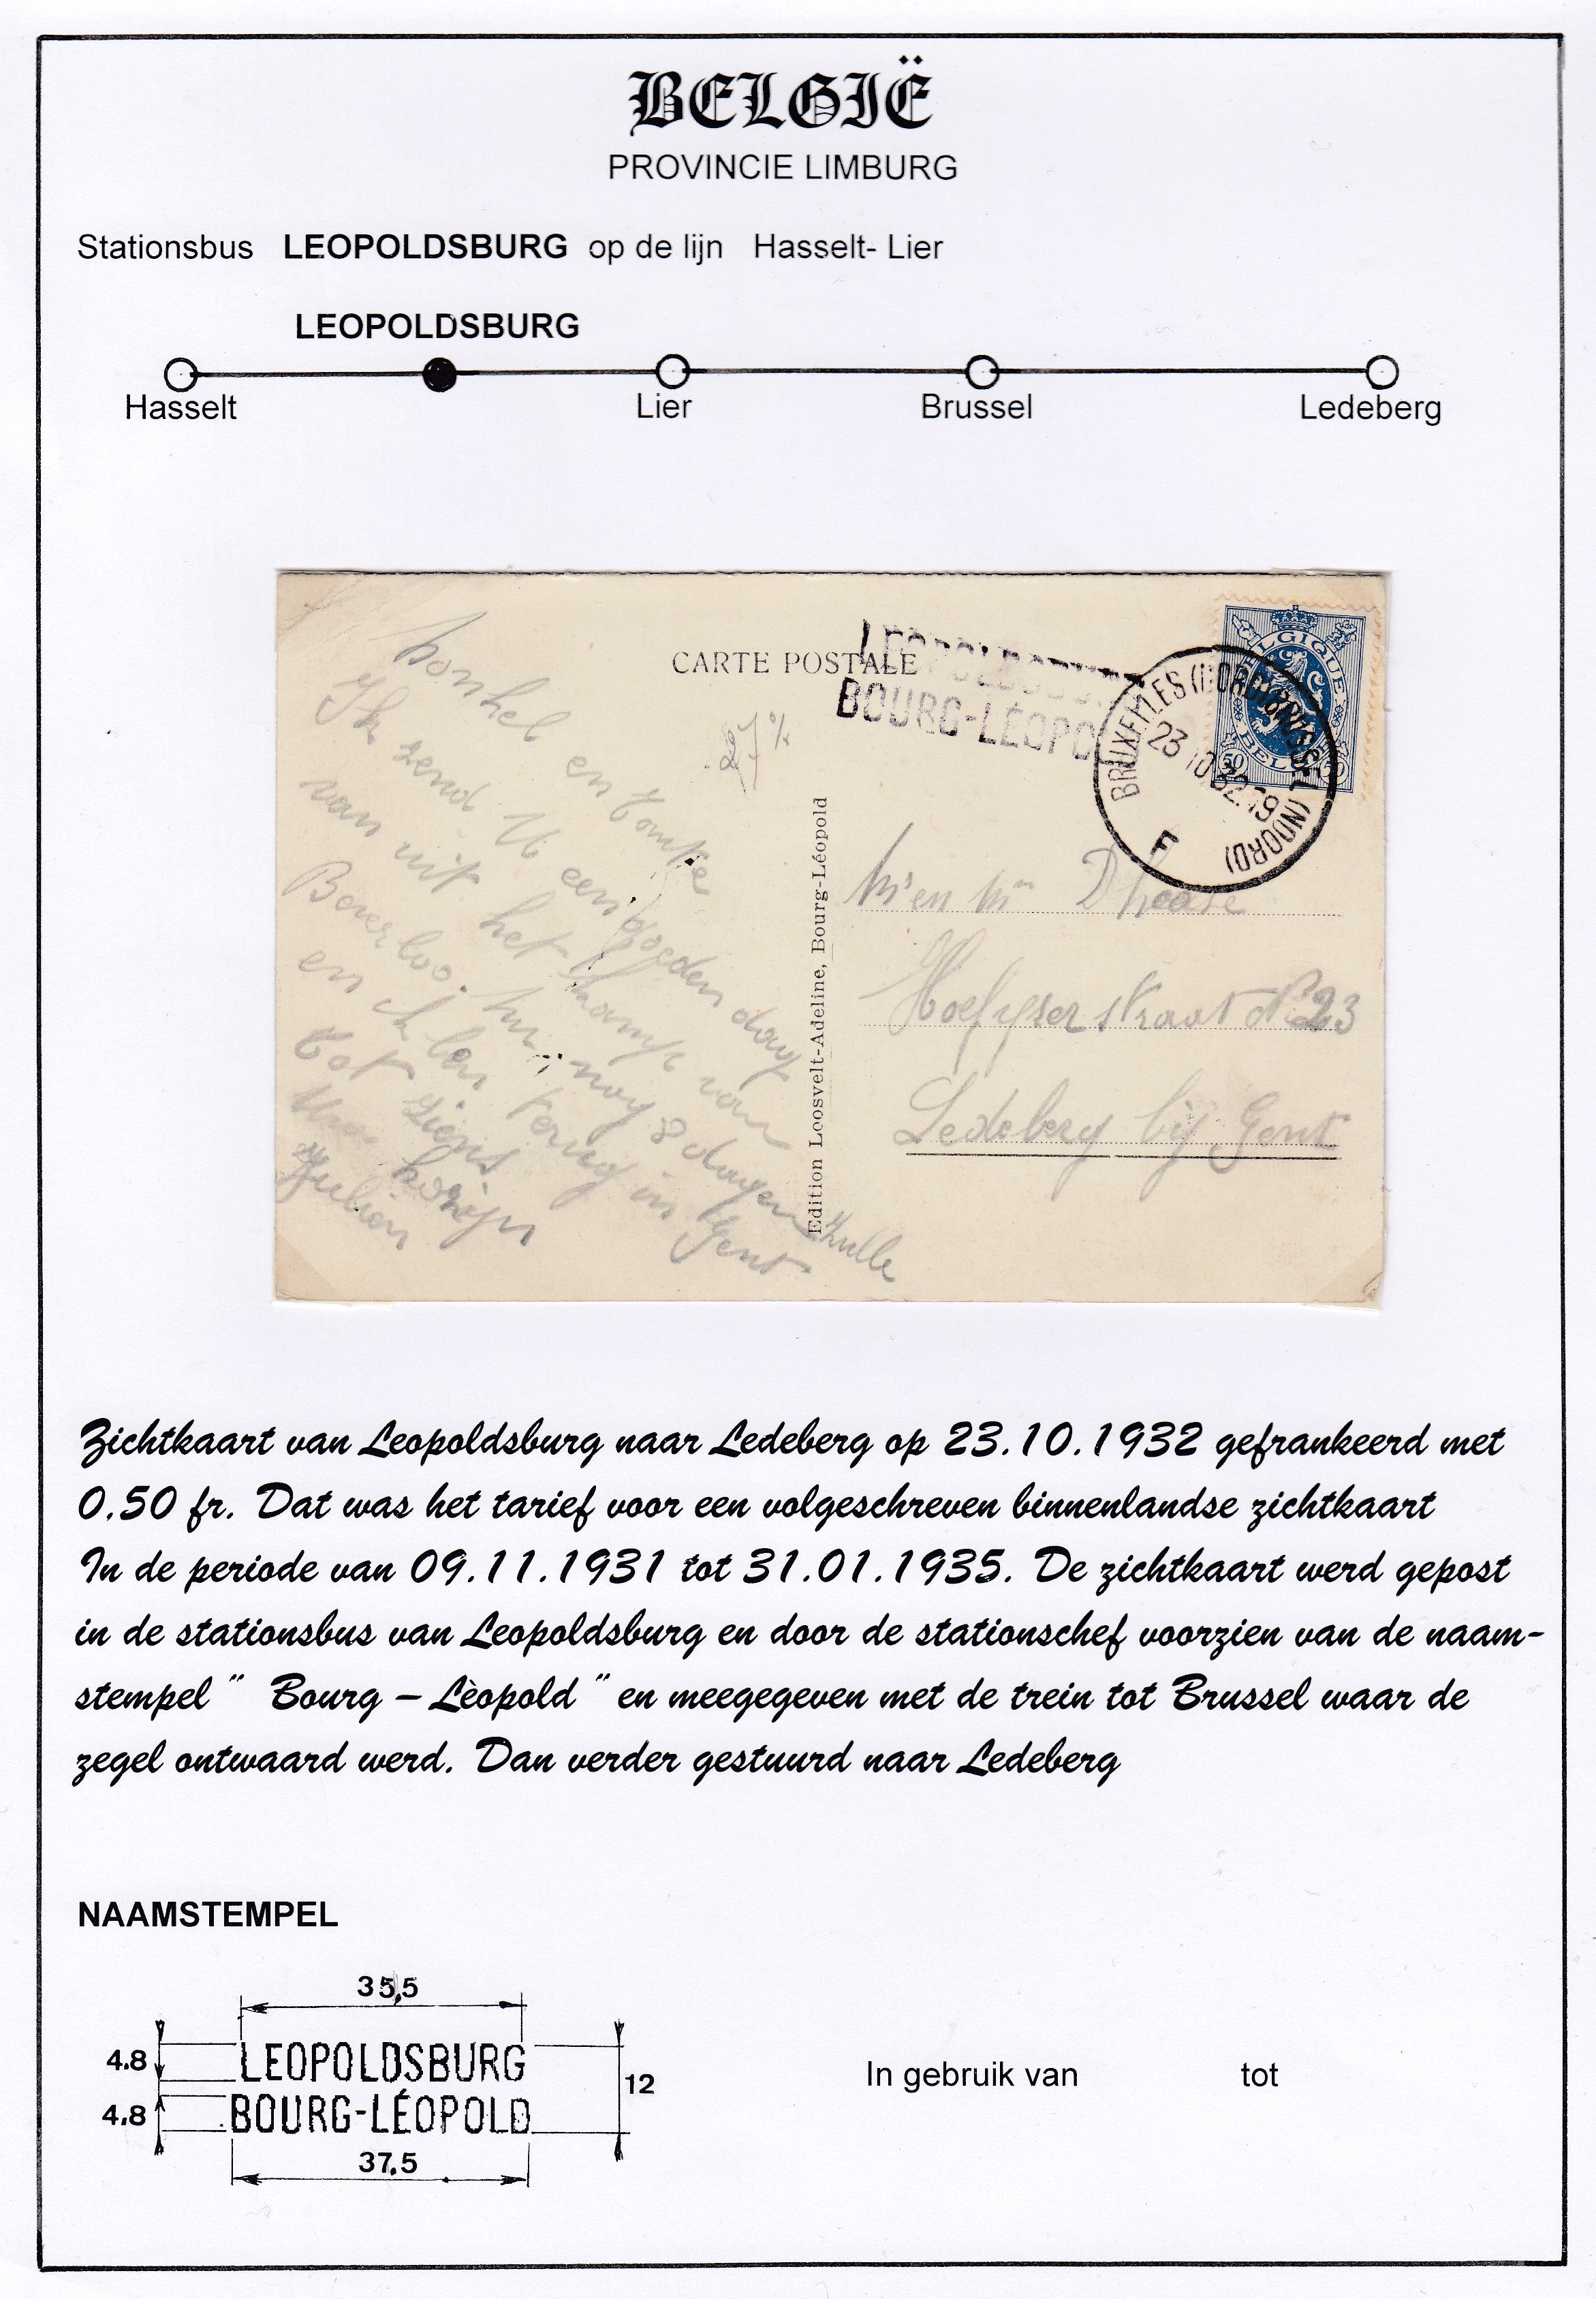 BELGIË
PROVINCIE LIMBURG
Stationsbus LEOPOLDSBURG op de lijn Hasselt- Lier
LEOPOLDSBURG
Hasselt Lier Brussel Ledeberg
CARTE POSTALE
LEOPOLDSBU
BOURG-LÉOPO
BRUXELLES (NORD) BRUSSEL (NOORD)
23 10 32 19
F
BELGIQUE
BELGIË
50 50
27%
Nonkel en Tante
Ik zend U een goeden dag
van uit het kamp van
Beverloo. nog 8 dagen
en ik ben terug in Gent
Tot ziens
kozijn
Julien
Edition Loosvelt-Adeline, Bourg-Léopold
Mr en Mm Dhoose
Hoefyser straat No 23
Ledeberg bij Gent
Zichtkaart van Leopoldsburg naar Ledeberg op 23.10.1932 gefrankeerd met
0.50 fr. Dat was het tarief voor een volgeschreven binnenlandse zichtkaart
In de periode van 09.11.1931 tot 31.01.1935. De zichtkaart werd gepost
in de stationsbus van Leopoldsburg en door de stationschef voorzien van de naam-
stempel " Bourg – Lèopold " en meegegeven met de trein tot Brussel waar de
zegel ontwaard werd. Dan verder gestuurd naar Ledeberg
NAAMSTEMPEL
35,5
4.8 LEOPOLDSBURG
12
4.8 BOURG-LÉOPOLD
37,5
In gebruik van tot